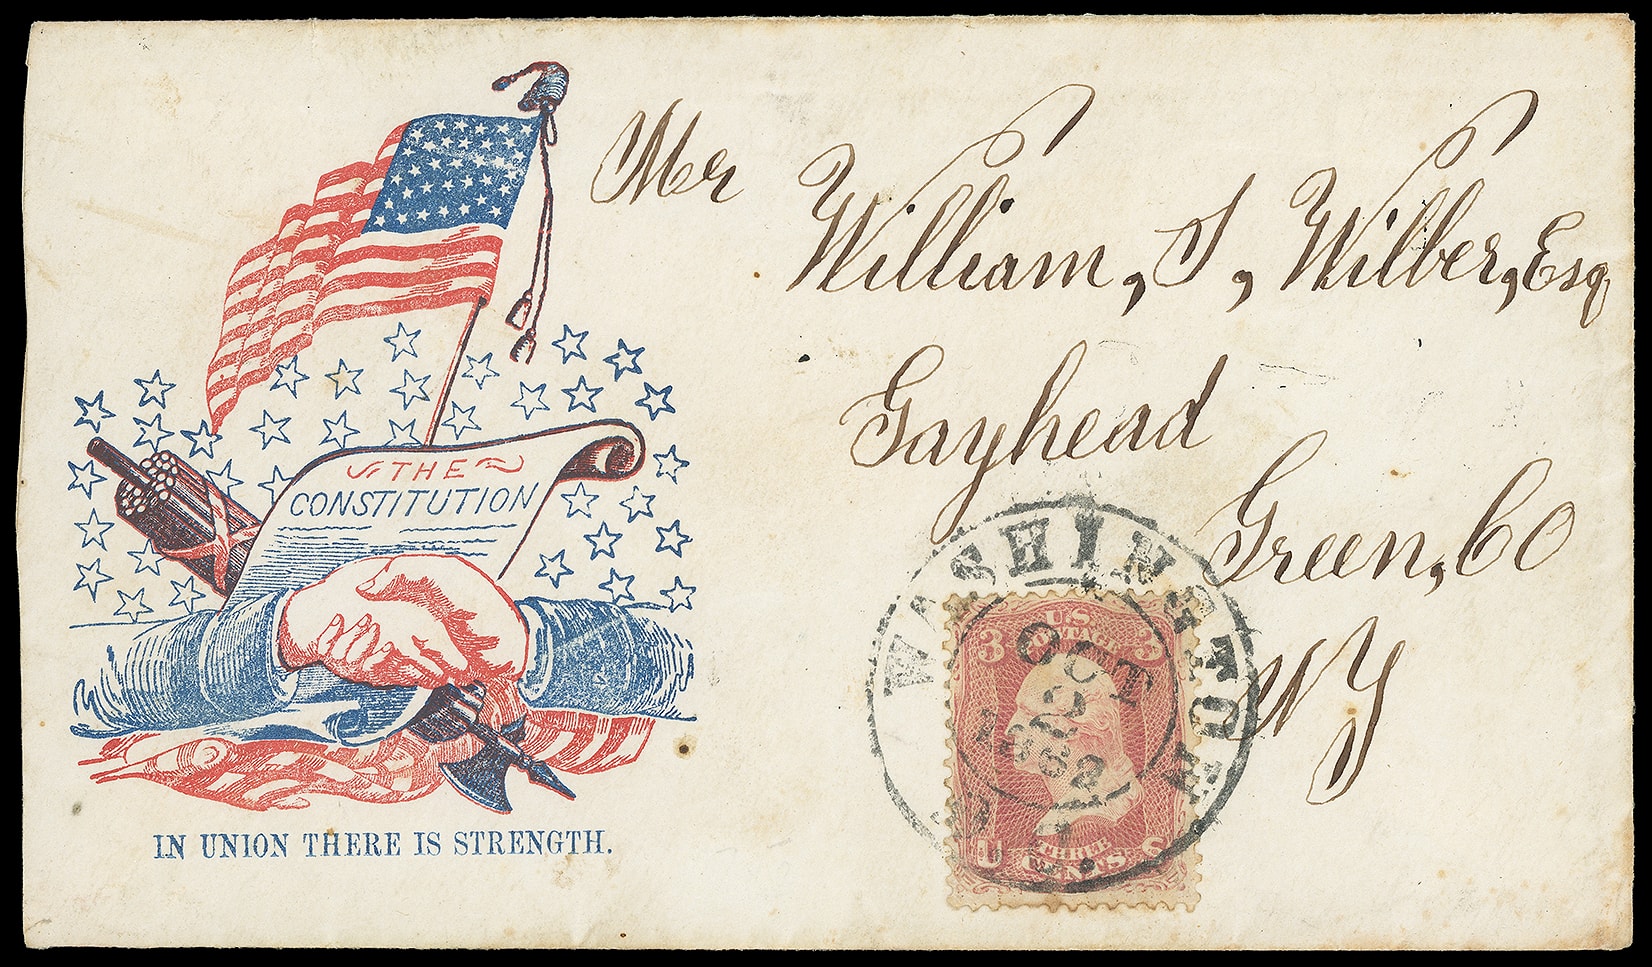 Mr
William, S, Wilber, Esq
Gayhead
Green, Co
NY
THE
CONSTITUTION
IN UNION THERE IS STRENGTH.
WASHINGTON
OCT
20
1862
U.S.
POSTAGE
3 3
U S
THREE
CENTS